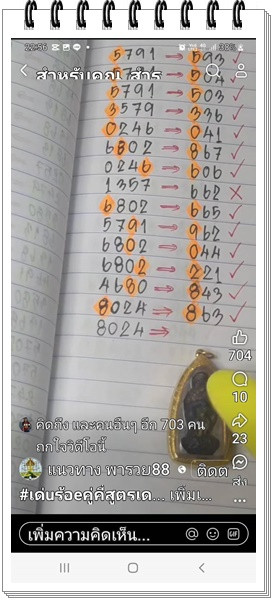 22:56 38%
สำหรับคุณ สำรวจ
5791 → 593 ✓
5791 → 503 ✓
3579 → 336 ✓
0246 → 041 ✓
6802 → 867 ✓
0246 → 606 ✓
1357 → 662 ✗
6802 → 665 ✓
5791 → 962 ✓
6802 → 044 ✓
6802 → 221 ✓
4680 → 843 ✓
8024 → 863 ✓
8024 →
704
10
คิดถึง และคนอื่นๆ อีก 703 คน
ถูกใจวิดีโอนี้
23
แนวทาง พารวย88 ติดต
ส่ง
#เด่นร้อeคู่คี่สูตรเด... เพิ่มเ...
เพิ่มความคิดเห็น... GIF